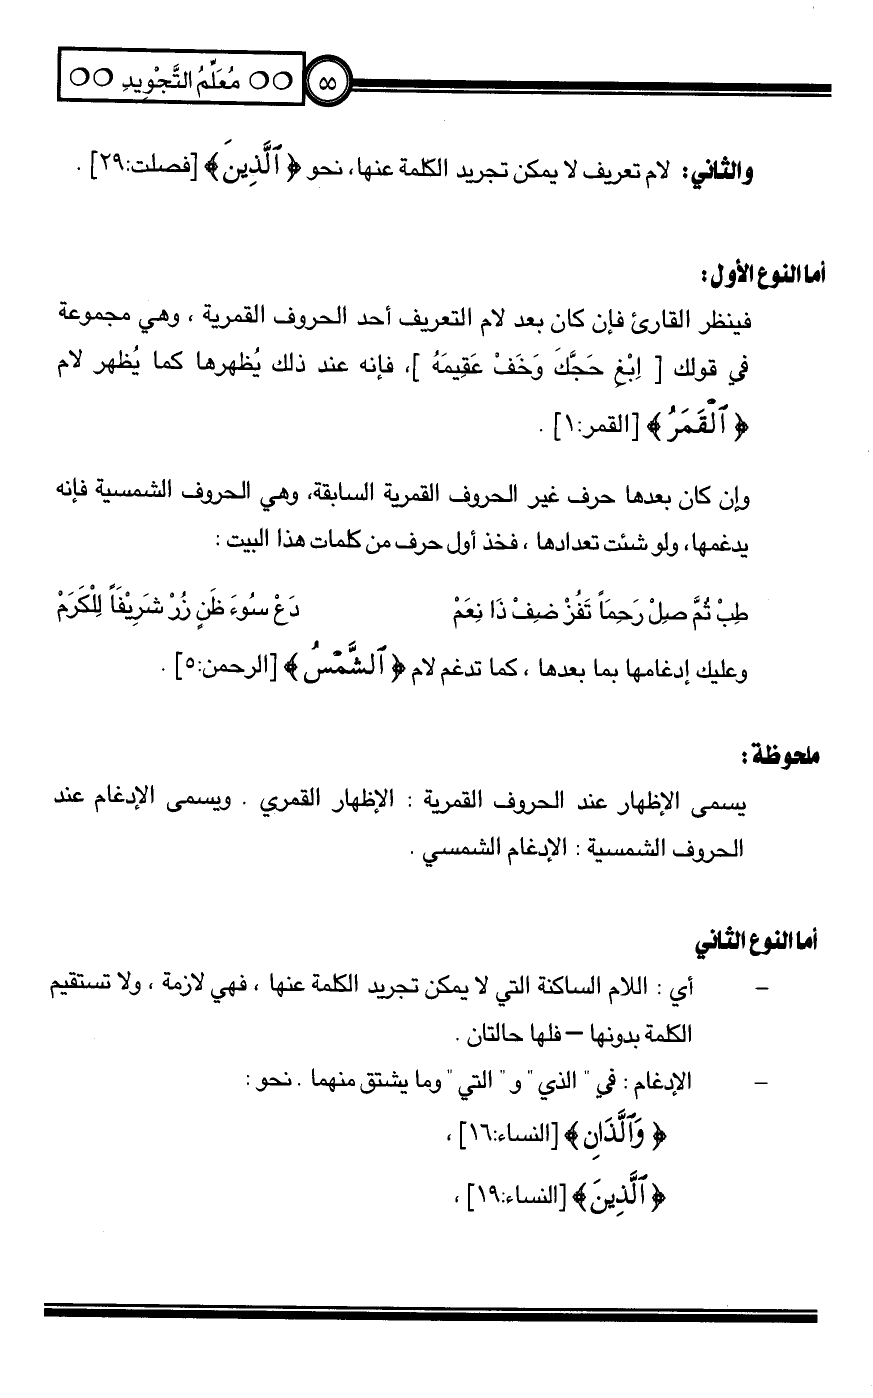 ○○ مُعَلِّمُ التَّجْوِيدِ ○○ ٥٥
والثاني: لام تعريف لا يمكن تجريد الكلمة عنها، نحو ﴿ ٱلَّذِينَ ﴾ [فصلت:٢٩] .
أما النوع الأول:
فينظر القارئ فإن كان بعد لام التعريف أحد الحروف القمرية ، وهي مجموعة
في قولك [ اِبْغِ حَجَّكَ وَخَفْ عَقِيمَهُ ]، فإنه عند ذلك يُظهرها كما يُظهر لام
﴿ ٱلْقَمَرُ ﴾ [القمر:١] .
وإن كان بعدها حرف غير الحروف القمرية السابقة، وهي الحروف الشمسية فإنه
يدغمها، ولو شئت تعدادها ، فخذ أول حرف من كلمات هذا البيت :
طِبْ ثُمَّ صِلْ رَحِمَاً تَفُزْ ضِفْ ذَا نِعَمْ دَعْ سُوءَ ظَنٍ زُرْ شَرِيفَاً لِلْكَرَمْ
وعليك إدغامها بما بعدها ، كما تدغم لام ﴿ ٱلشَّمْسُ ﴾ [الرحمن:٥] .
ملحوظة :
يسمى الإظهار عند الحروف القمرية : الإظهار القمري . ويسمى الإدغام عند
الحروف الشمسية : الإدغام الشمسي .
أما النوع الثاني
– أي : اللام الساكنة التي لا يمكن تجريد الكلمة عنها ، فهي لازمة ، ولا تستقيم
الكلمة بدونها – فلها حالتان .
– الإدغام : في " الذي " و " التي " وما يشتق منهما . نحو :
﴿ وَٱلَّذَانِ ﴾ [النساء:١٦] ،
﴿ ٱلَّذِينَ ﴾ [النساء:١٩] ،